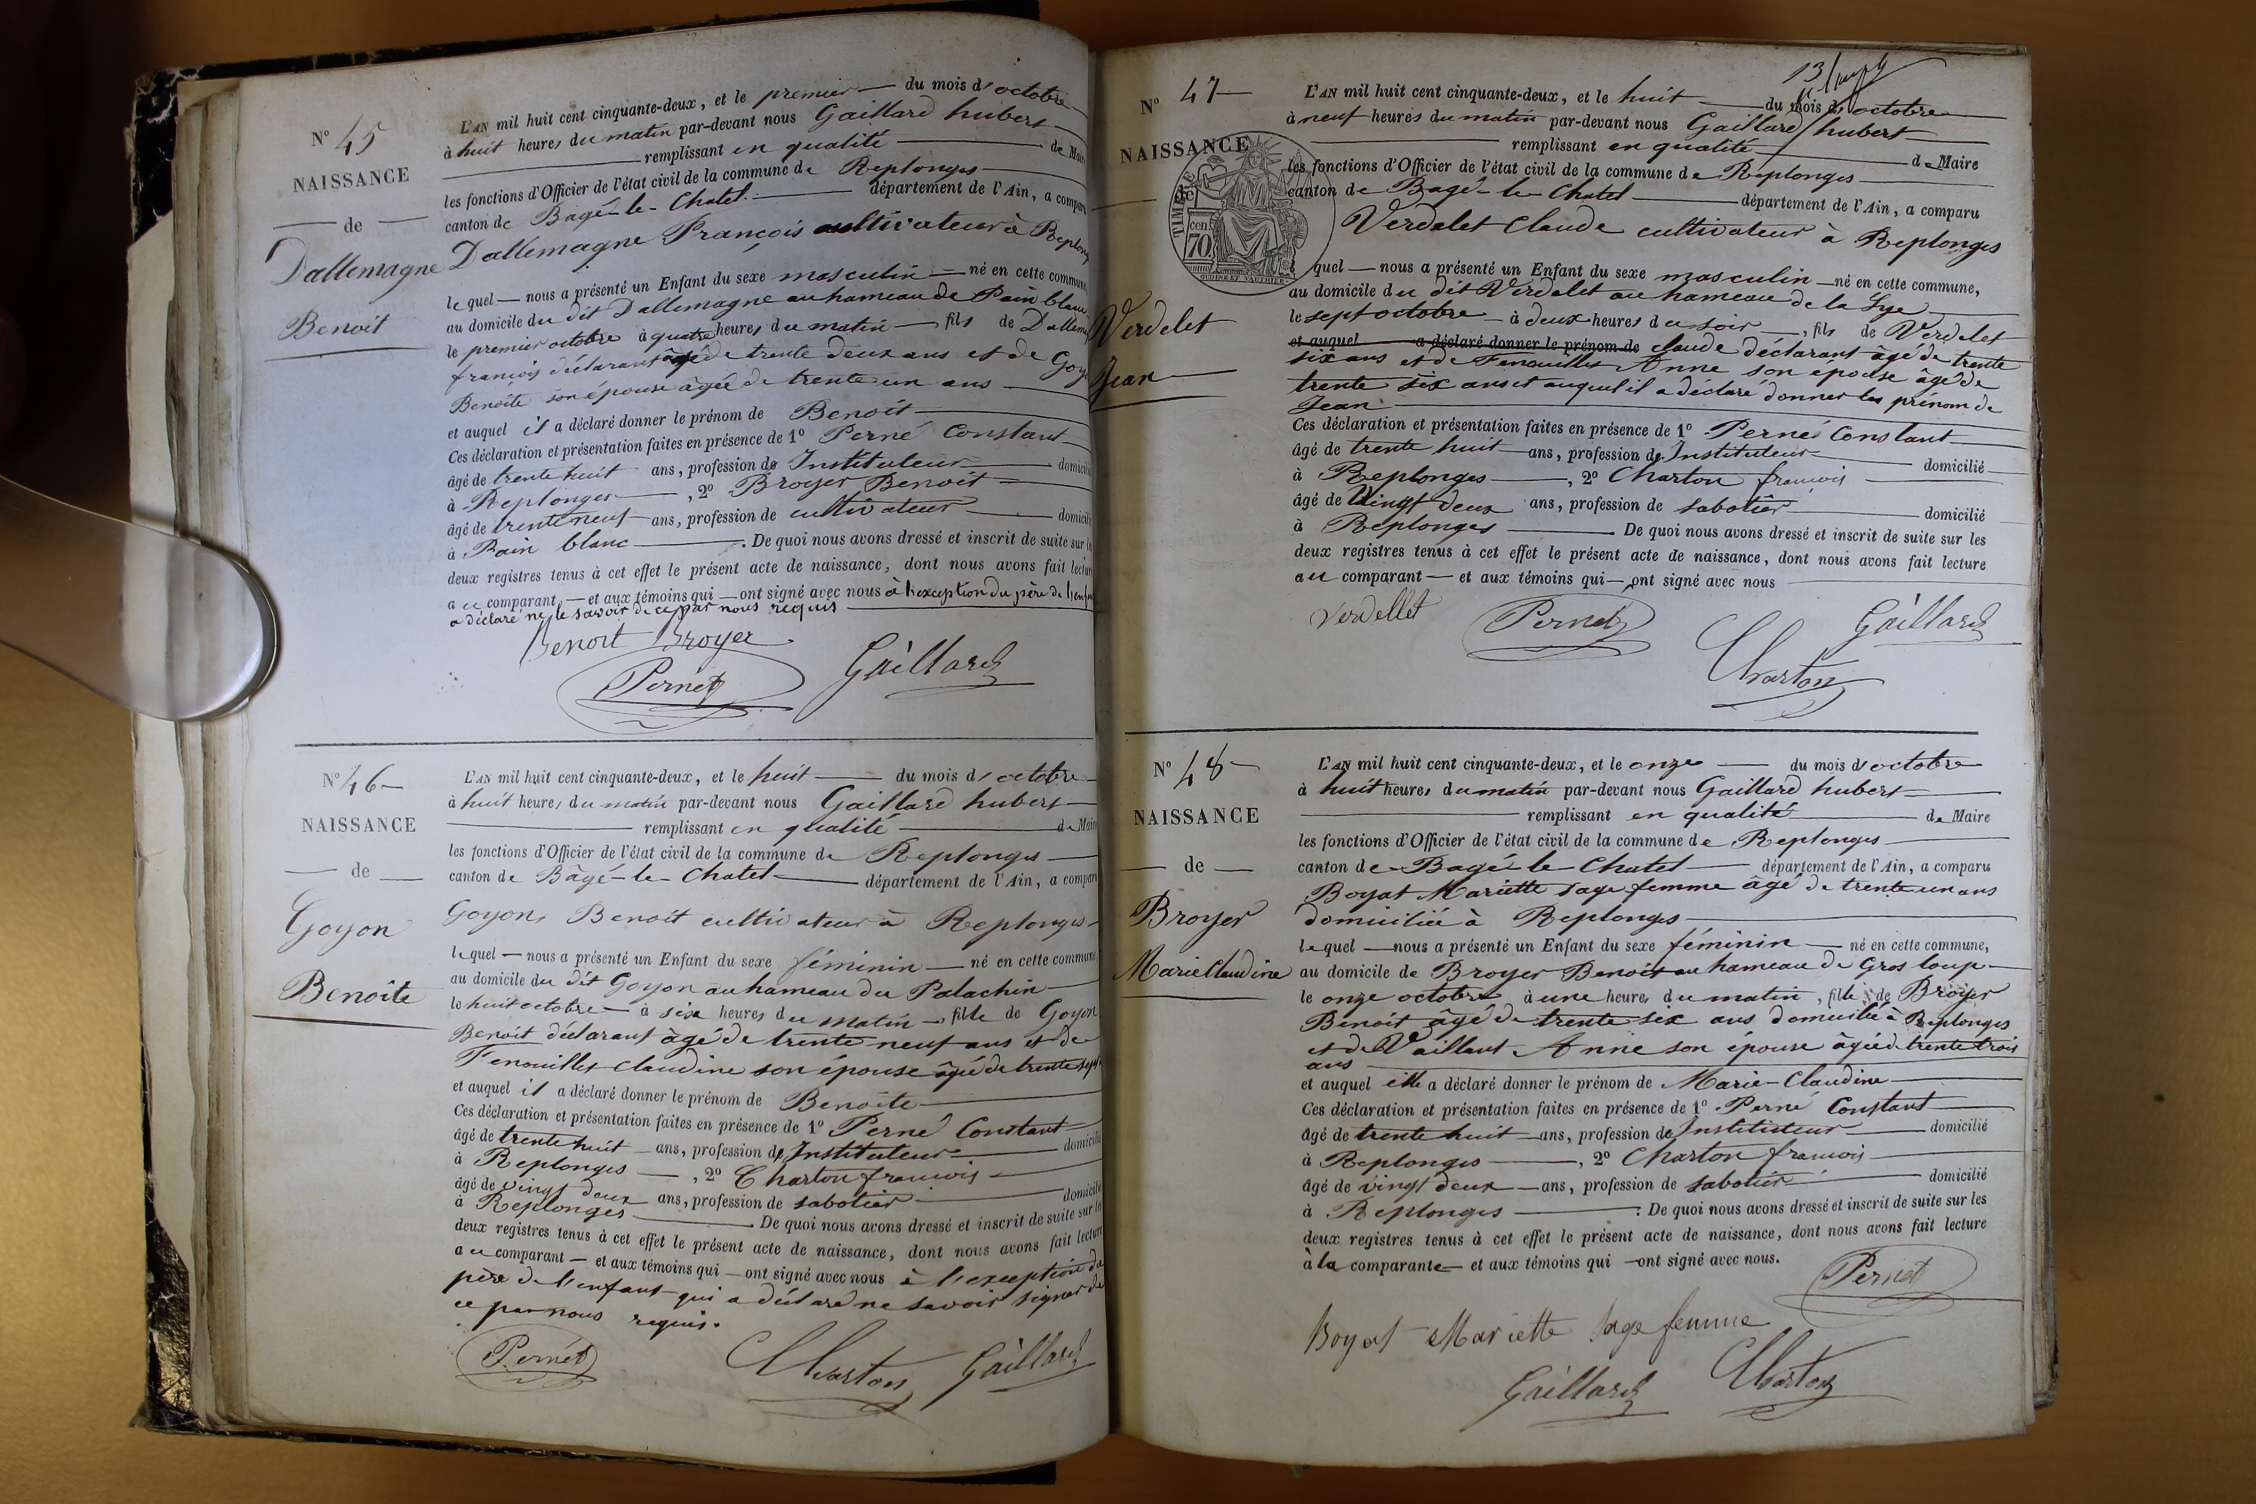 N° 45
NAISSANCE
de
Dallemagne
Benoit
L'AN mil huit cent cinquante-deux, et le premier du mois d'octobre
à huit heures du matin par-devant nous Gaillard hubert
remplissant en qualité de Maire
les fonctions d'Officier de l'état civil de la commune de Replonges
canton de Bagé-le-Chatel département de l'Ain, a comparu
Dallemagne François cultivateur à Replonges
lequel nous a présenté un Enfant du sexe masculin né en cette commune,
au domicile du dit Dallemagne au hameau de Pain blanc
le premier octobre à quatre heures du matin fils de Dallem
françois déclarant âgé de trente deux ans et de Goyon
Benoîte son épouse âgée de trente un ans
et auquel il a déclaré donner le prénom de Benoit
Ces déclaration et présentation faites en présence de 1° Perné Constant
âgé de trente huit ans, profession de Instituteur domicilié
à Replonges, 2° Broyer Benoit
âgé de trente neuf ans, profession de cultivateur domicilié
à Pain blanc. De quoi nous avons dressé et inscrit de suite sur les
deux registres tenus à cet effet le présent acte de naissance, dont nous avons fait lecture
au comparant et aux témoins qui ont signé avec nous à l'exception du père de l'enfant
a déclaré ne le savoir de ce par nous requis
Benoit Broyer
Pernet Gaillard
N° 46
NAISSANCE
de
Goyon
Benoîte
L'AN mil huit cent cinquante-deux, et le huit du mois d'octobre
à huit heures du matin par-devant nous Gaillard hubert
remplissant en qualité de Maire
les fonctions d'Officier de l'état civil de la commune de Replonges
canton de Bâgé-le-Chatel département de l'Ain, a comparu
Goyon Benoit cultivateur à Replonges
lequel nous a présenté un Enfant du sexe féminin né en cette commune
au domicile du dit Goyon au hameau du Palachin
le huit octobre à six heures du matin fille de Goyon
Benoit déclarant âgé de trente neuf ans et de
Fenouillet Claudine son épouse âgée de trente sept
et auquel il a déclaré donner le prénom de Benoîte
Ces déclaration et présentation faites en présence de 1° Perné Constant
âgé de trente huit ans, profession de Instituteur domicilié
à Replonges, 2° Charton françois
âgé de vingt deux ans, profession de sabotier domicilié
à Replonges. De quoi nous avons dressé et inscrit de suite sur les
deux registres tenus à cet effet le présent acte de naissance, dont nous avons fait lecture
au comparant et aux témoins qui ont signé avec nous à l'exception du
père de l'enfant qui a déclaré ne savoir signer de
ce par nous requis.
Pernet Charton Gaillard
13
N° 47
NAISSANCE
de
Verdelet
Jean
TIMBRE
70 cen
L'AN mil huit cent cinquante-deux, et le huit du mois d'octobre
à neuf heures du matin par-devant nous Gaillard hubert
remplissant en qualité de Maire
les fonctions d'Officier de l'état civil de la commune de Replonges
canton de Bagé-le-Chatel département de l'Ain, a comparu
Verdelet Claude cultivateur à Replonges
quel nous a présenté un Enfant du sexe masculin né en cette commune,
au domicile du dit Verdelet au hameau de la Lye
le sept octobre à deux heures du soir, fils de Verdelet
et auquel a déclaré donner le prénom de claude déclarant âgé de trente
six ans et de Fenouillet Anne son épouse âgé de
trente six ans et auquel il a déclaré donner les prénom de
Jean
Ces déclaration et présentation faites en présence de 1° Perné Constant
âgé de trente huit ans, profession de Instituteur domicilié
à Replonges, 2° Charton françois
âgé de vingt deux ans, profession de sabotier domicilié
à Replonges De quoi nous avons dressé et inscrit de suite sur les
deux registres tenus à cet effet le présent acte de naissance, dont nous avons fait lecture
au comparant et aux témoins qui ont signé avec nous
Verdellet Pernet Gaillard
Charton
N° 48
NAISSANCE
de
Broyer
Marie Claudine
L'AN mil huit cent cinquante-deux, et le onze du mois d'octobre
à huit heures du matin par-devant nous Gaillard hubert
remplissant en qualité de Maire
les fonctions d'Officier de l'état civil de la commune de Replonges
canton de Bagé-le-Chatel département de l'Ain, a comparu
Boyat Mariette sage femme âgé de trente un ans
domiciliée à Replonges
lequel nous a présenté un Enfant du sexe féminin né en cette commune,
au domicile de Broyer Benoit au hameau de Gros loup
le onze octobre à une heures du matin, fille de Broyer
Benoit âgé de trente six ans domicilié à Replonges
et de Vaillant Anne son épouse âgée de trente trois
ans
et auquel elle a déclaré donner le prénom de Marie-Claudine
Ces déclaration et présentation faites en présence de 1° Perné Constant
âgé de trente huit ans, profession de Instituteur domicilié
à Replonges, 2° Charton françois
âgé de vingt deux ans, profession de sabotier domicilié
à Replonges. De quoi nous avons dressé et inscrit de suite sur les
deux registres tenus à cet effet le présent acte de naissance, dont nous avons fait lecture
à la comparante et aux témoins qui ont signé avec nous.
Pernet
Boyat Mariette sage femme
Gaillard Charton